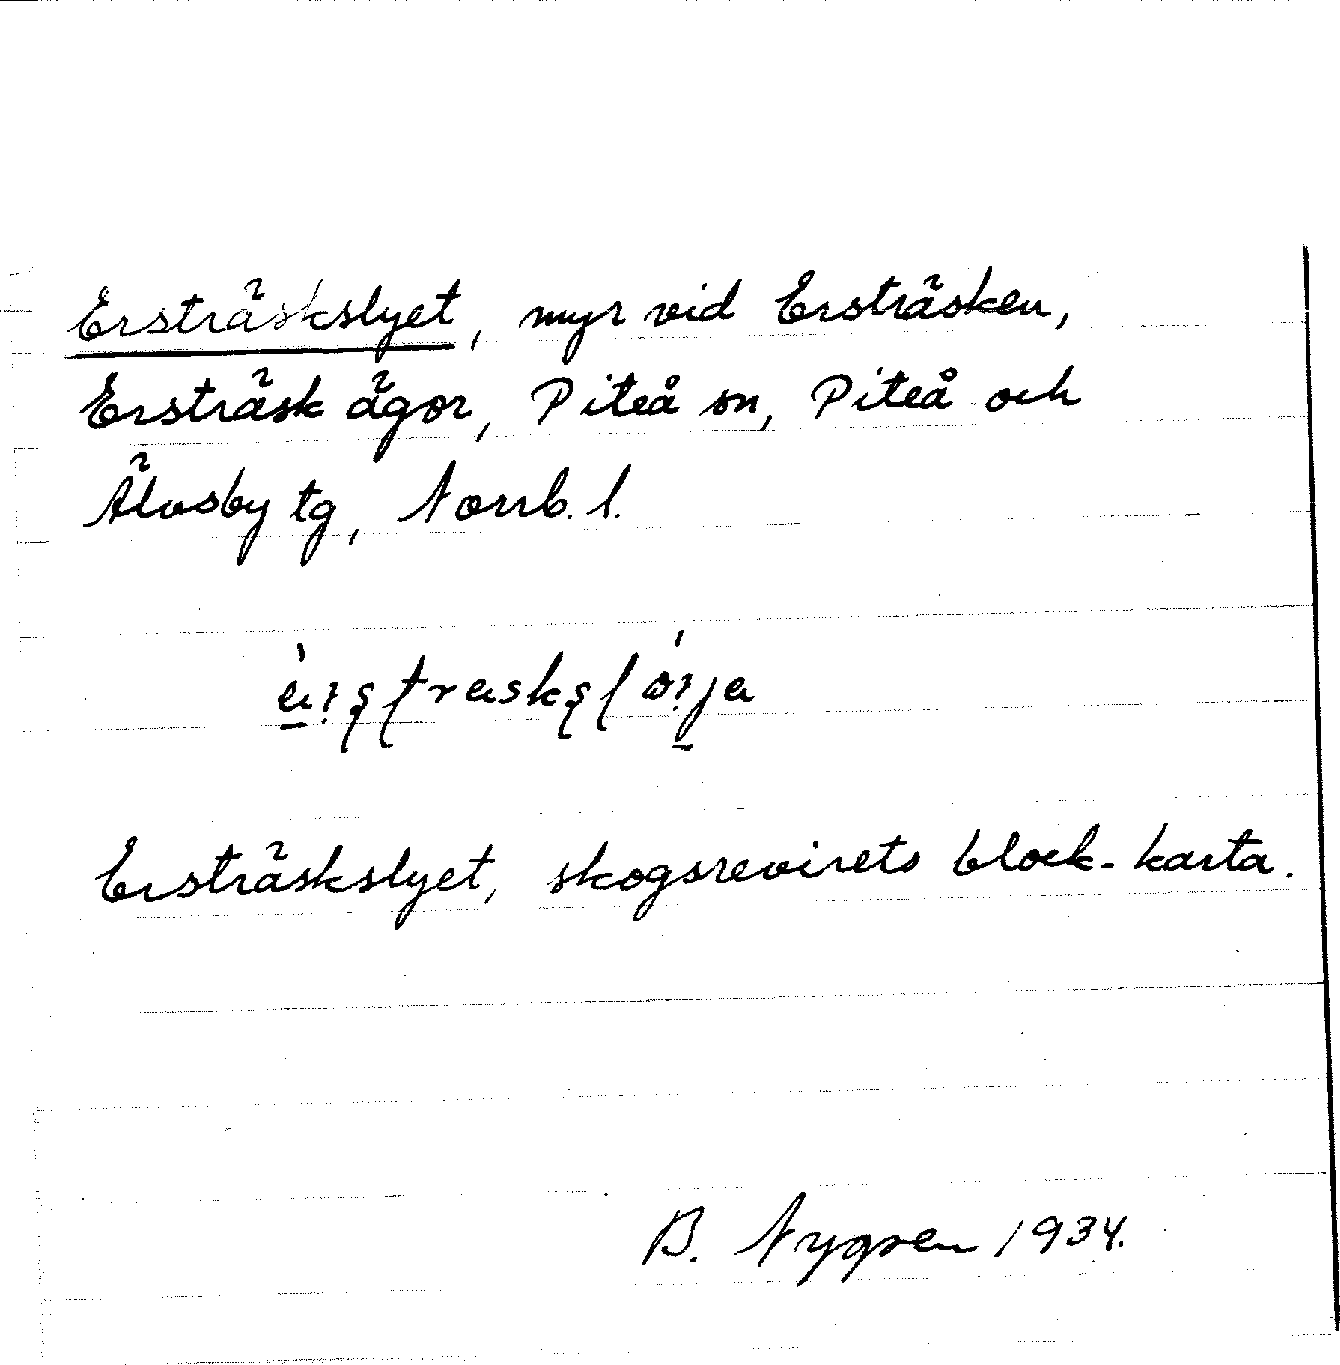 Ersträskslyet, myr vid Ersträsken,
Ersträsk ägor, Piteå sn, Piteå och
Älvsby tg, Norrb. l.
Ersträskslyet, skogsrevirets block-karta.
B. Nygren 1934.